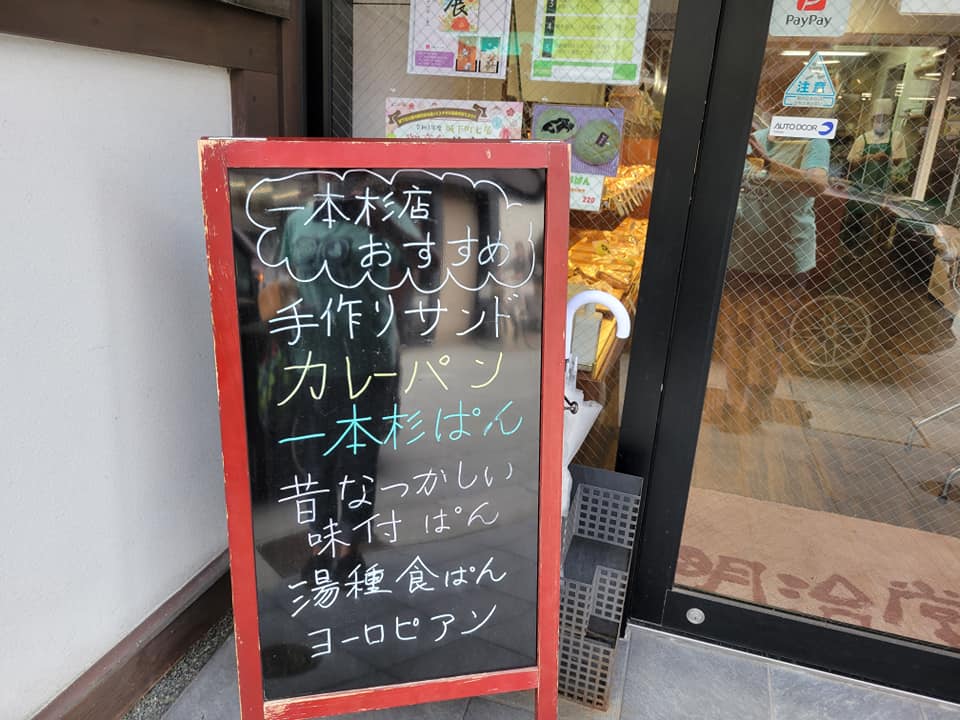 展
PayPay
注意
AUTO DOOR
城下町七尾
ぱん
220
一本杉店
おすすめ
手作りサンド
カレーパン
一本杉ぱん
昔なつかしい
味付ぱん
湯種食ぱん
ヨーロピアン